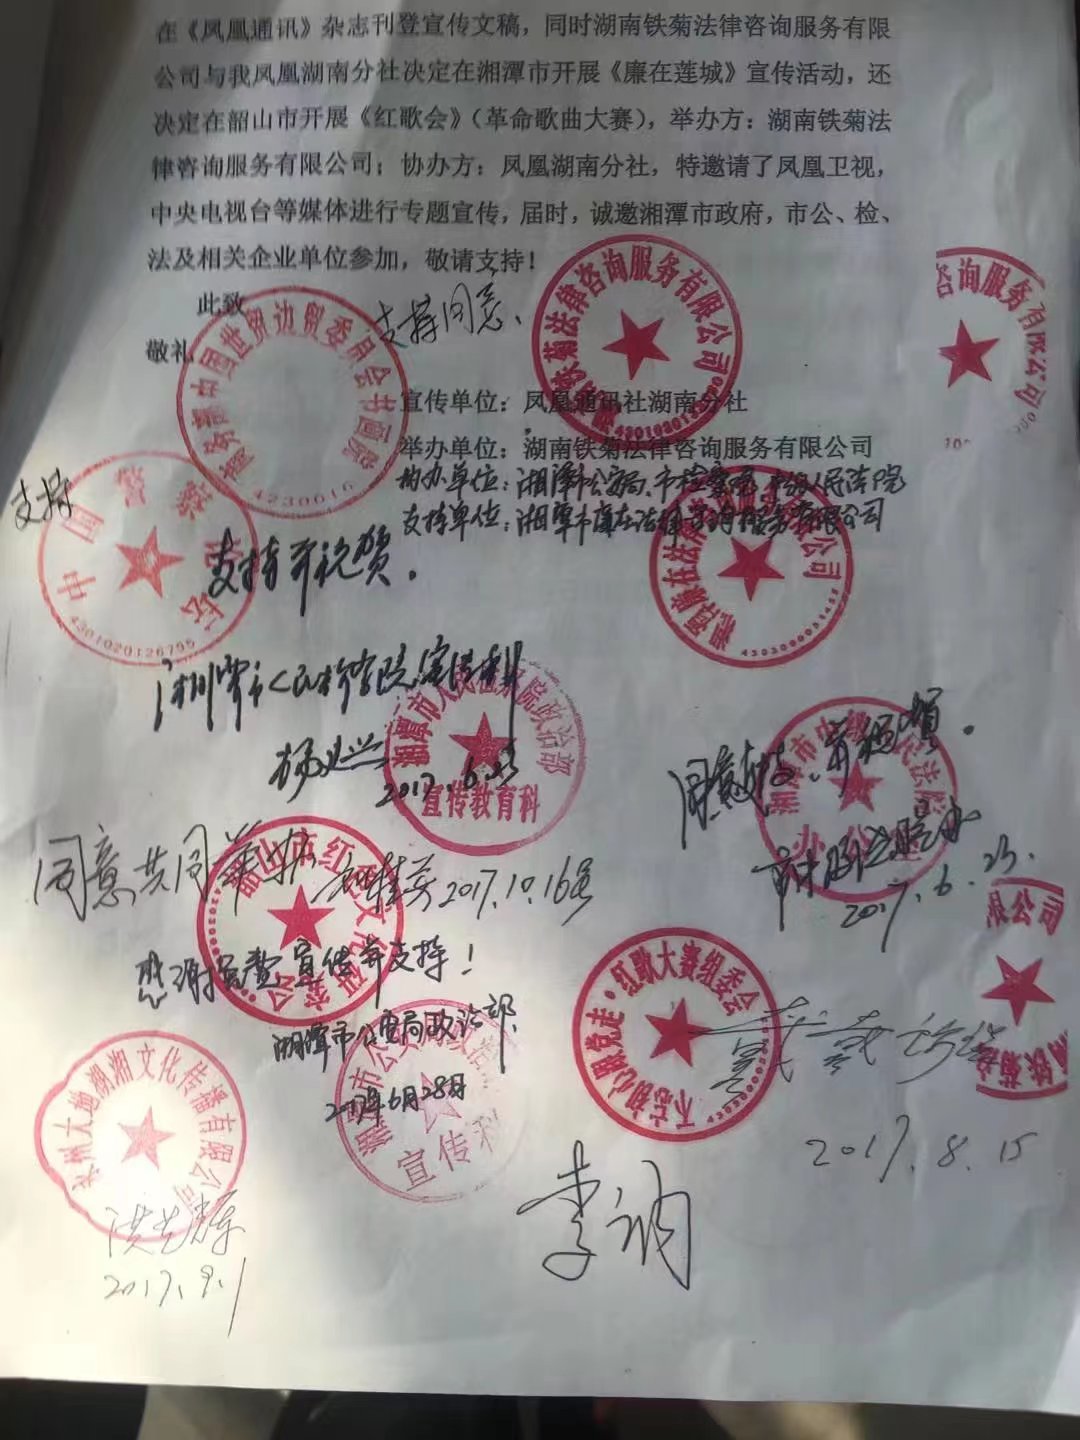 在《凤凰通讯》杂志刊登宣传文稿，同时湖南铁菊法律咨询服务有限
公司与我凤凰湖南分社决定在湘潭市开展《廉在莲城》宣传活动，还
决定在韶山市开展《红歌会》（革命歌曲大赛），举办方：湖南铁菊法
律咨询服务有限公司；协办方：凤凰湖南分社，特邀请了凤凰卫视，
中央电视台等媒体进行专题宣传，届时，诚邀湘潭市政府，市公、检、
法及相关企业单位参加，敬请支持！
此致
敬礼
支持同意
铁菊法律咨询服务有限公司
咨询服务有限公司
中国世贸边贸委员会书画院
4230016
宣传单位：凤凰通讯社湖南分社
举办单位：湖南铁菊法律咨询服务有限公司
协办单位：湘潭市公安局、市检察院、中级人民法院
支持单位：湘潭市廉在法律咨询服务有限公司
支持
中国警
4301020126795
支持并祝贺.
湘潭市人民检察院宣传科
2017.6.23
湘潭市人民检察院政治部
宣传教育科
同意支持、并祝贺.
2017.6.23.
同意共同举办
2017.10.16号
感谢免费宣传并支持！
湘潭市公安局政治部
2017年6月28日
宣传科
不忘初心跟党走·红歌大赛组委会
2017.8.15
限公司
铁菊
大地湖湘文化传播有限公司
2017.9.1
李